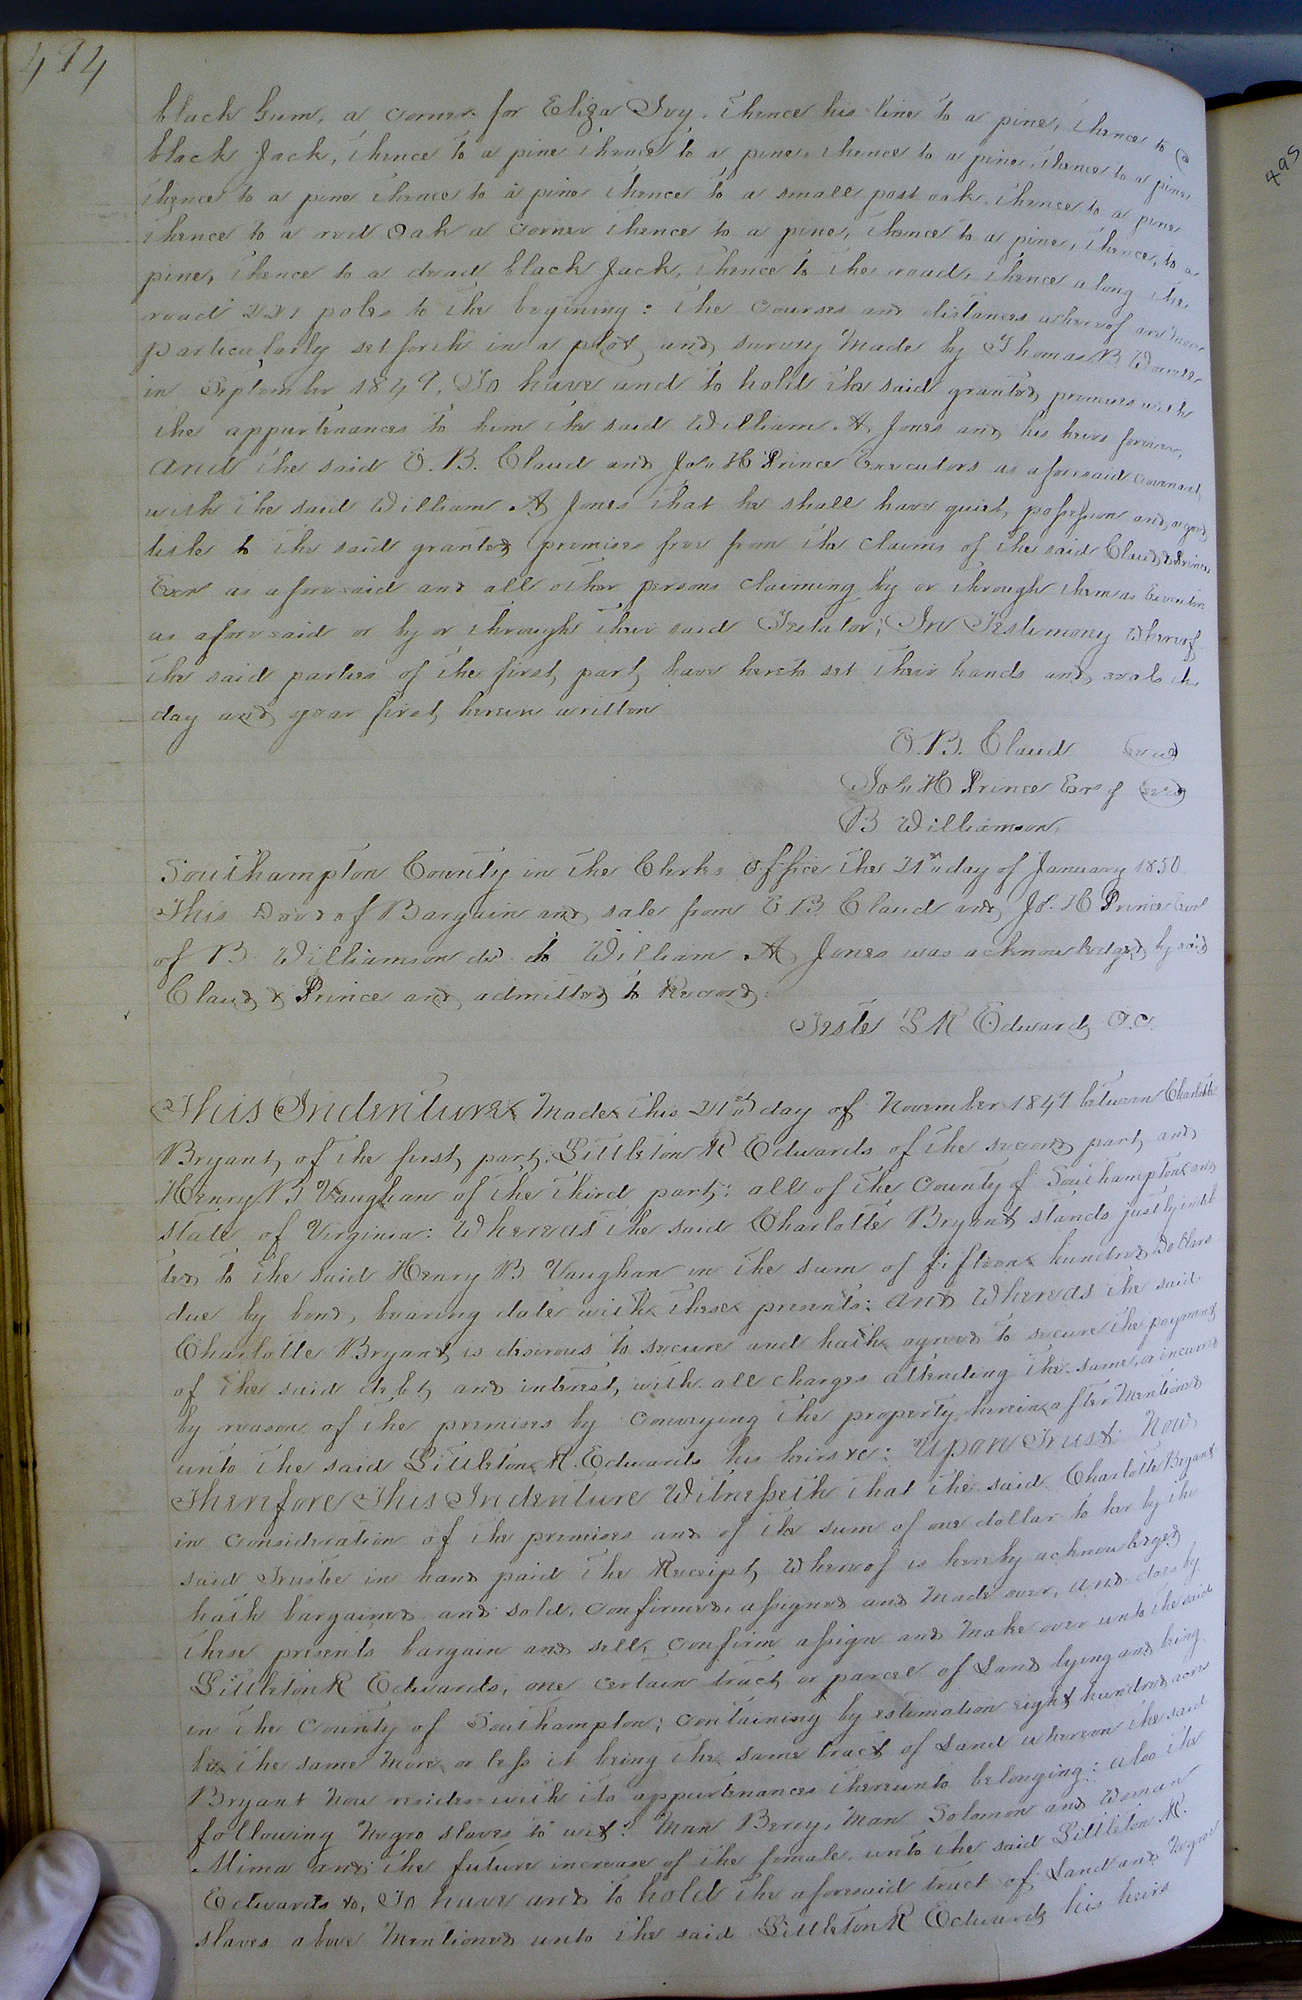 494
495
black Gum, a corner for Eliza Ivy, thence his line to a pine, thence to a
black Jack, thence to a pine thence to a pine, thence to a pine, thence to a pine
thence to a pine thence to a pine thence to a small post oak thence to a pine
thence to a red Oak a corner thence to a pine, thence to a pine, thence, to a
pine, thence to a dead black Jack, thence to the road, thence along the
road 221 poles to the begining: the courses and distances whereof are more
particularly set forth in a plot and survey made by Thomas B.
in September 1849, To have and to hold the said granted premises with
the appurtenances to him the said William A. Jones and his heirs forever,
And the said O. B. Claud and Jos. H Prince Executors as aforesaid covenant
with the said William A Jones that he shall have quiet, possession and a good
title to the said granted premises free from the claims of the said Claud & Prince
Exors as aforesaid and all other persons claiming by or through them as Executors
as aforesaid or by or through their said Testator; In Testimony whereof
the said parties of the first part have hereto set their hands and seals the
day and year first herein written
O. B. Claud seal
Jos. H Prince Exrs of seal
B Williamson
Southampton County in the Clerks Office the 21st day of January 1850
This Deed of Bargain and sale from O B Claud and Jos. H Prince Exors
of B. Williamson dec. to William A Jones was acknowledged by said
Claud & Prince and admitted to Record.
Teste L R Edwards C.C.
This Indenture Made this 21st day of November 1849 between Charlotte
Bryant, of the first part, Littleton R Edwards of the second part, and
Henry B Vaughan of the third part; all of the County of Southampton and
state of Virginia: Whereas the said Charlotte Bryant stands justly indeb
ted to the said Henry B Vaughan in the sum of fifteen hundred Dollars
due by bond, bearing date with these presents: and Whereas the said
Charlotte Bryant is desirous to secure and hath agreed to secure the payment
of the said debt and interest, with all charges attending the same, or incurred
by reason of the premises by conveying the property herein after Mentioned
unto the said Littleton R. Edwards his heirs &c: Upon Trust: Now
Therefore This Indenture Witnesseth that the said Charlotte Bryant
in consideration of the premises and of the sum of one dollar to her by the
said Trustee in hand paid the Receipt Whereof is hereby acknowledged
hath bargained and sold, confirmed, assigned and Made over, and does by
these presents bargain and sell, confirm assign and Make over unto the said
Littleton R Edwards, one certain tract or parcel of Land lying and being
in the County of Southampton; containing by estimation eight hundred acres
be the same More or less it being the same tract of Land whereon the said
Bryant Now resides with its appurtenances thereunto belonging: also the
following Negro slaves to wit: Man Berry, Man Solomon and Woman
Mima and the future increase of the female unto the said Littleton R.
Edwards &c, To have and to hold the aforesaid tract of Land and Negro
slaves above Mentioned unto the said Littleton R Edwards his heirs